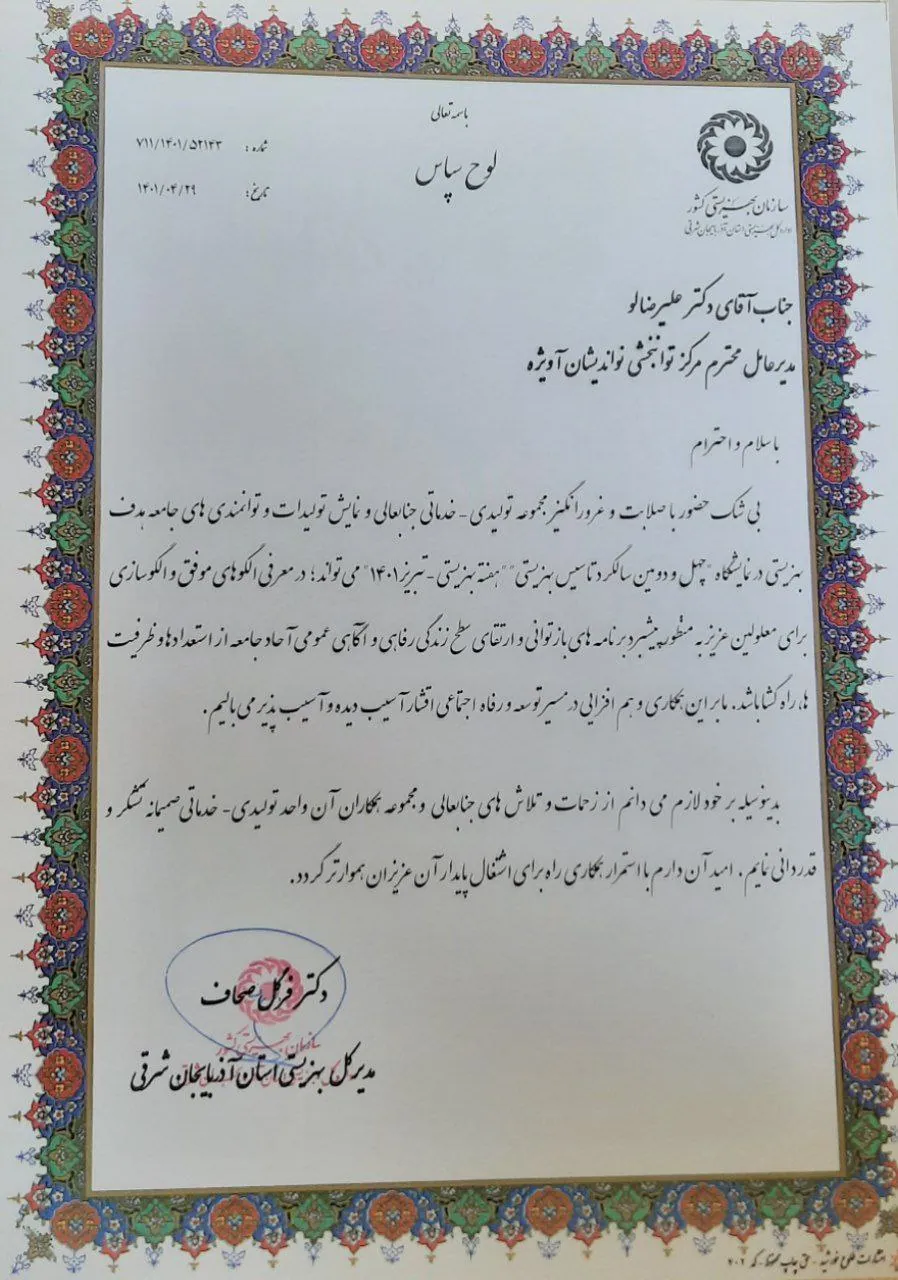 باسمه تعالی
لوح سپاس
شماره : ۷۱۱/۱۴۰۱/۵۲۱۴۳
تاریخ: ۱۴۰۱/۰۴/۲۹
سازمان بهزیستی کشور
اداره کل بهزیستی استان آذربایجان شرقی
جناب آقای دکتر علیرضالو
مدیرعامل محترم مرکز توانبخشی نواندیشان آویژه
با سلام و احترام
بی شک حضور با صلابت و غرورانگیز مجموعه تولیدی - خدماتی جنابعالی و نمایش تولیدات و توانمندی های جامعه هدف
بهزیستی در نمایشگاه "چهل و دومین سالگرد تاسیس بهزیستی" "هفته بهزیستی - تبریز ۱۴۰۱" می تواند؛ در معرفی الگوهای موفق و الگوسازی
برای معلولین عزیز به منظور پیشبرد برنامه های بازتوانی و ارتقای سطح زندگی رفاهی و آگاهی عمومی آحاد جامعه از استعدادها و ظرفیت
ها، راه گشا باشد. ما بر این همکاری و هم افزایی در مسیر توسعه و رفاه اجتماعی اقشار آسیب دیده و آسیب پذیر می بالیم.
بدینوسیله بر خود لازم می دانم از زحمات و تلاش های جنابعالی و مجموعه همکاران آن واحد تولیدی - خدماتی صمیمانه تشکر و
قدردانی نمایم. امید آن دارم با استمرار همکاری راه برای اشتغال پایدار آن عزیزان هموارتر گردد.
دکتر فرگل صحاف
سازمان بهزیستی کشور
مدیرکل بهزیستی استان آذربایجان شرقی